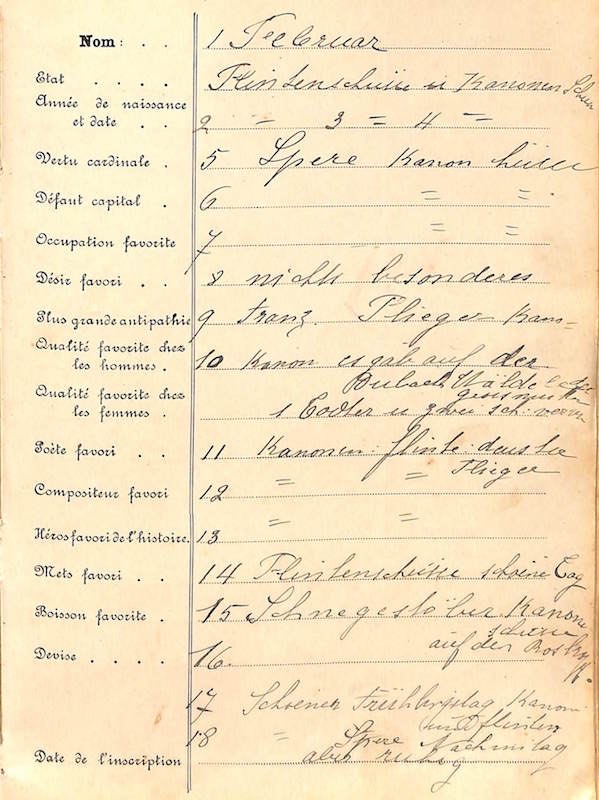 Nom: . . 1 Feebruar
Etat . . . . Flintenschüsse u Kanonen
Année de naissance
et date . . 2 = 3 = 4 =
Vertu cardinale . 5 Spere Kanon
Défaut capital . 6 = =
Occupation favorite 7 = =
Désir favori . . 8 nichts besonderes
Plus grande antipathie 9 Franz. Flieger Kano=
Qualité favorite chez
les hommes . 10 Kanon es gab auf der
Qualité favorite chez
les femmes . 1 Todter u zwei sch. verw
Poète favori . . 11 Kanonen flinte deutsche
Flieger
Compositeur favori 12 = =
= =
Héros favori de l'histoire. 13
Mets favori . . 14 Flintenschüsse schoene Tag
Boisson favorite . 15 Schnegestöber Kanone
auf der
Devise . . . . 16.
17 Schoener Frühligstag Kanon
und flinten
18 = Spere Nachmitag
aber ruhig
Date de l'inscription